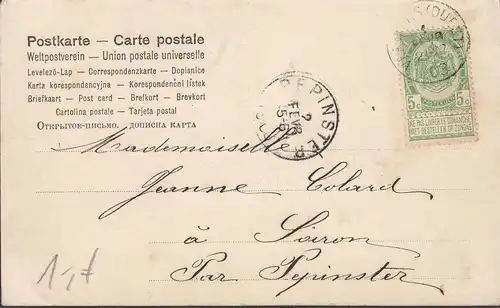 Postkarte — Carte postale
Weltpostverein — Union postale universelle
Levelező-Lap — Correspondenzkarte — Dopisnice
Karta korespondencyjna — Korespondenční lístek
Briefkaart — Post card — Brefkort — Brevkort
Cartolina postale — Tarjeta postal
Открытое-письмо, — дописна карта
PEPINSTER
2
FEVR
5-6
5c 5c
NE PAS LIVRER LE DIMANCHE
NIET BESTELLEN OP ZONDAG
Mademoiselle
Jeanne Colard
à
Soiron
Par Pepinster